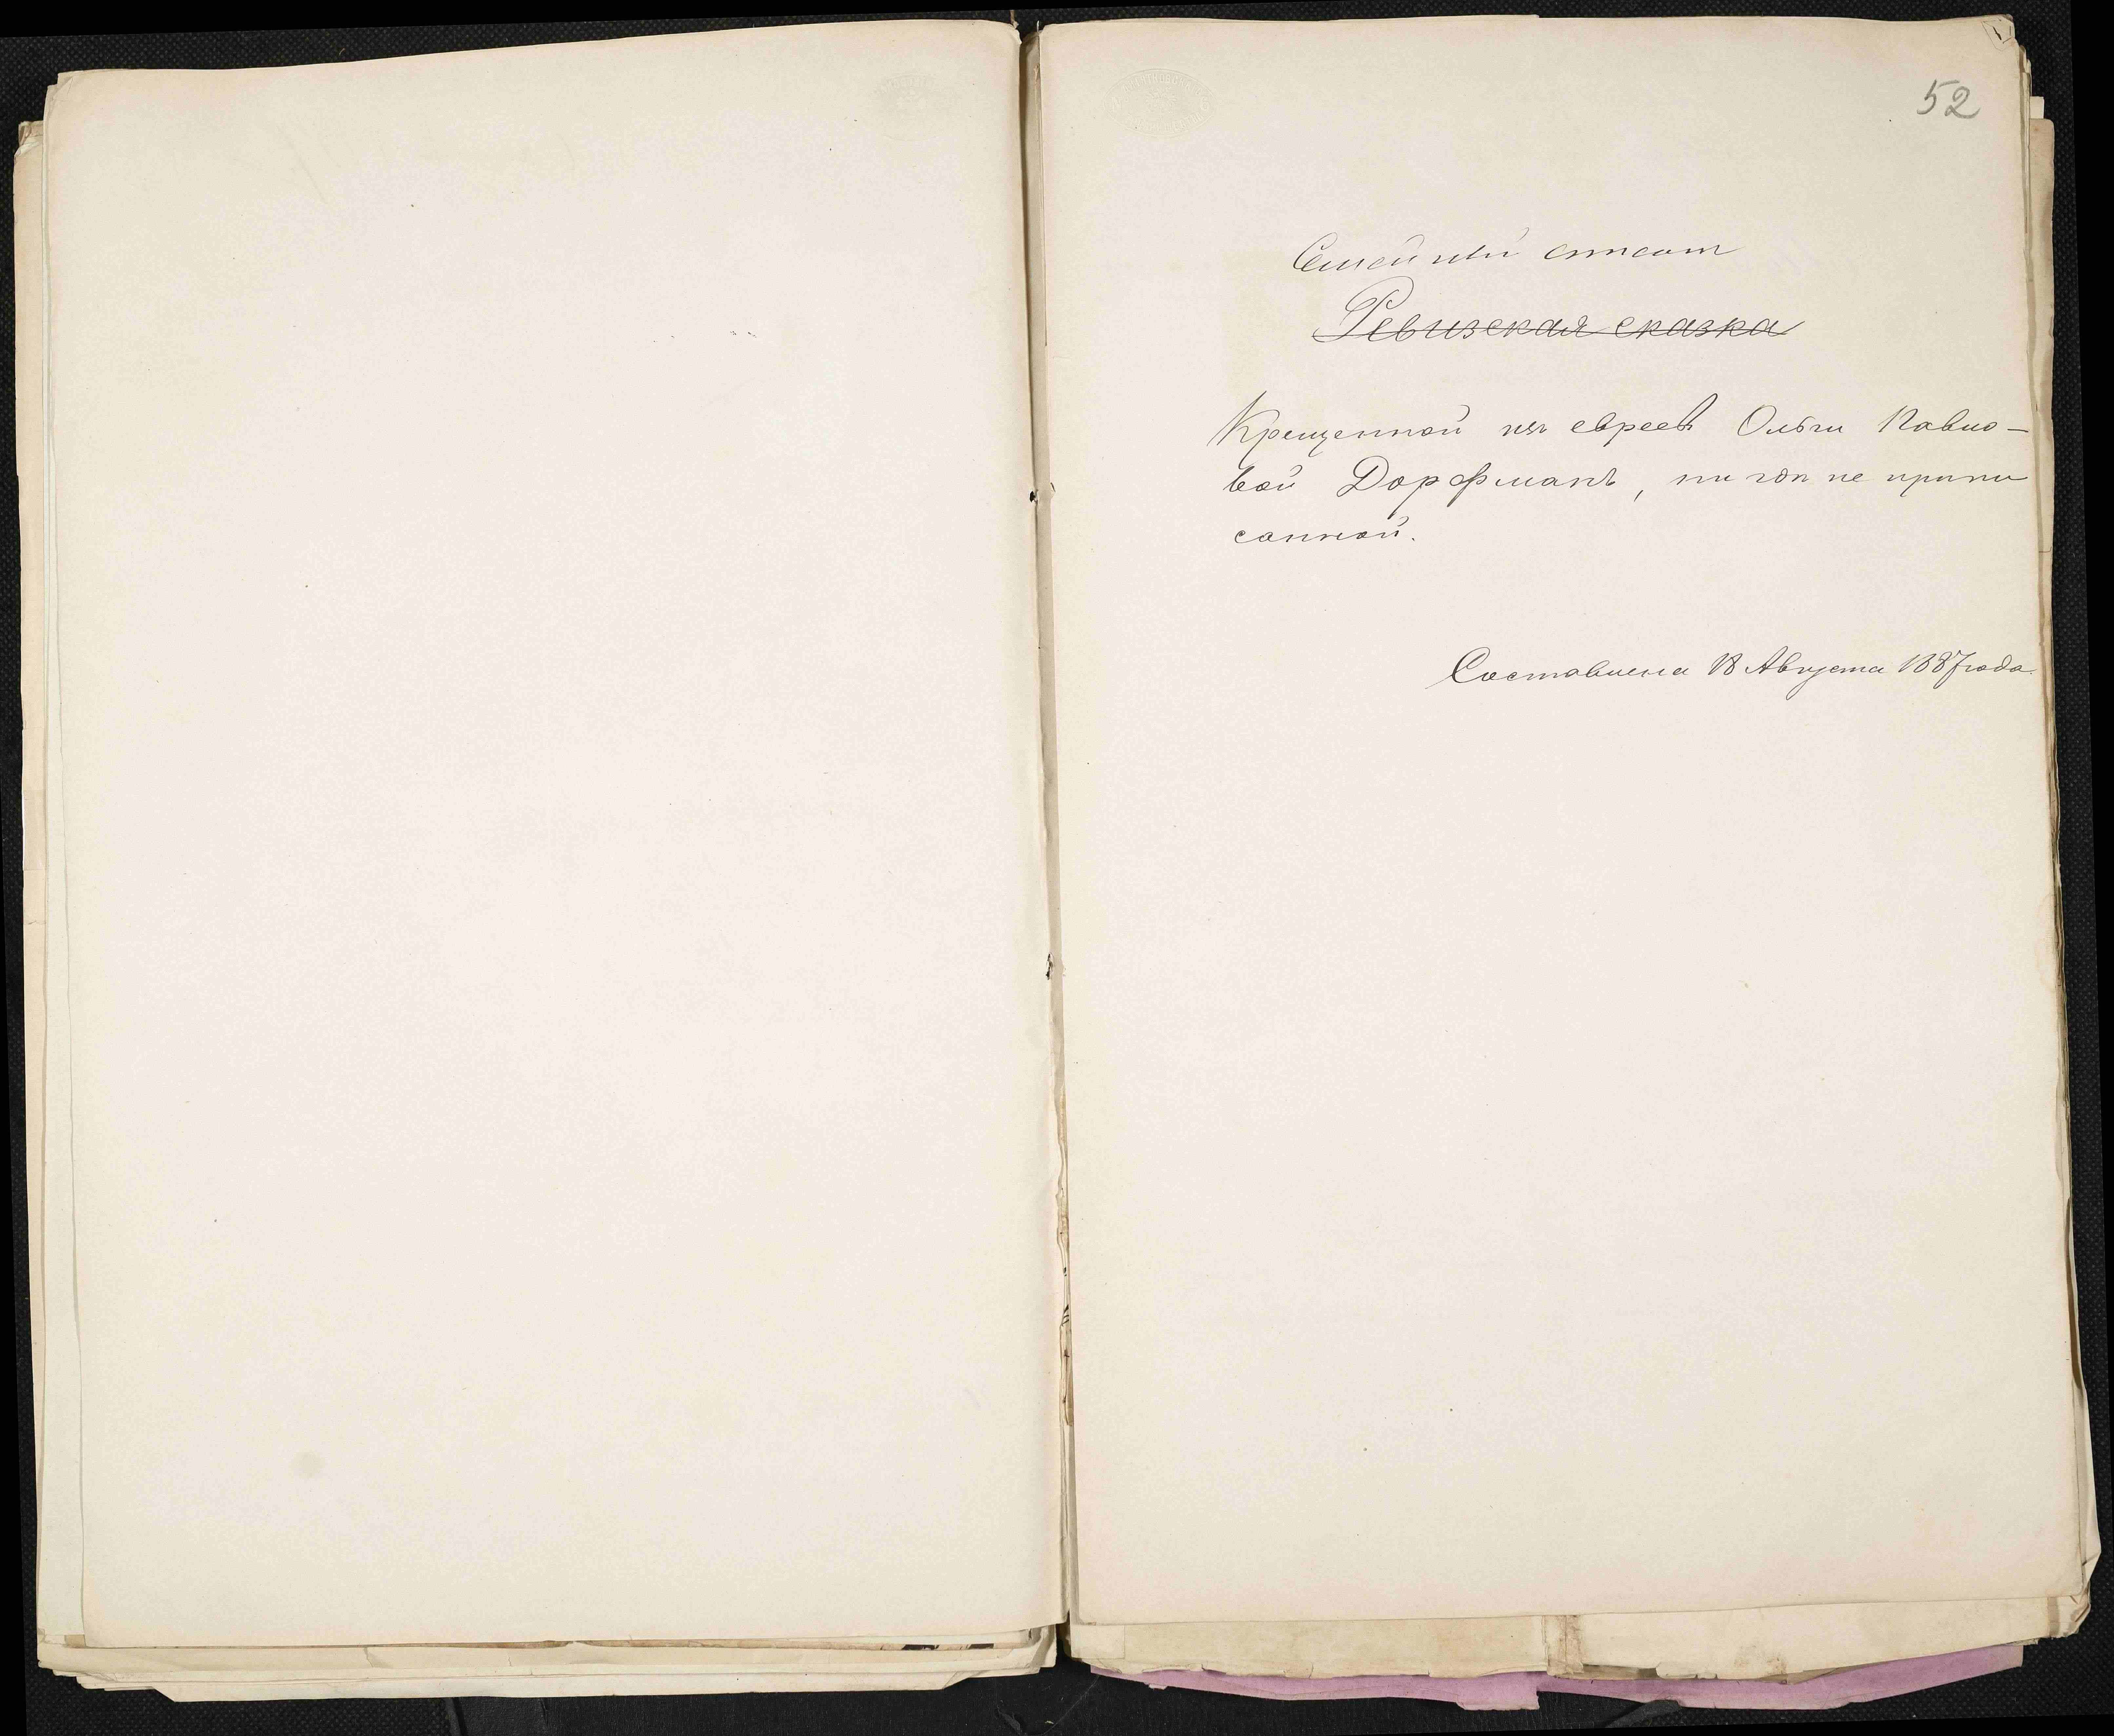 52
Семейный список
Ревизская сказка
Крещенной изъ евреевъ Ольги Павло-
вой Дорфманъ, ни гдѣ не припи
санной.
Составлена 18 Августа 1887 года.